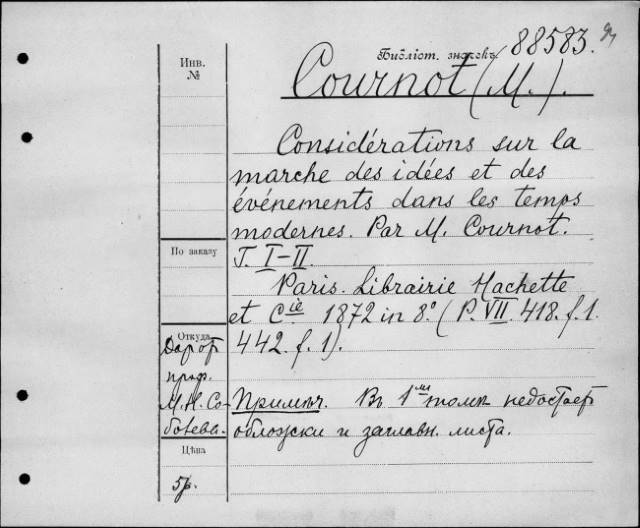 Инв.
№
Библіот. значекъ 88583.
Cournot (M.).
Considérations sur la
marche des idées et des
événements dans les temps
modernes. Par M. Cournot.
T. I-II.
По заказу
Paris. Librairie Hachette
et Cie 1872 in 8º. (P. VII. 418. f. 1.
442. f. 1).
Откуда
Дар от
проф.
М. Н. Со-
болева.
Примѣч. Въ 1мъ томѣ недостаетъ
обложки и заглавн. листа.
Цѣна
5р.